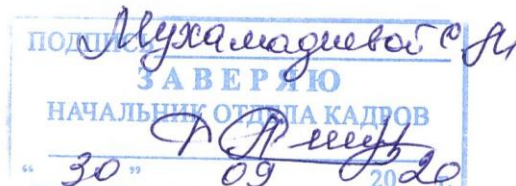 ПОДПИСЬ Мухамадиевой С.М
ЗАВЕРЯЮ
НАЧАЛЬНИК ОТДЕЛА КАДРОВ
“ 30 ” 09 2020